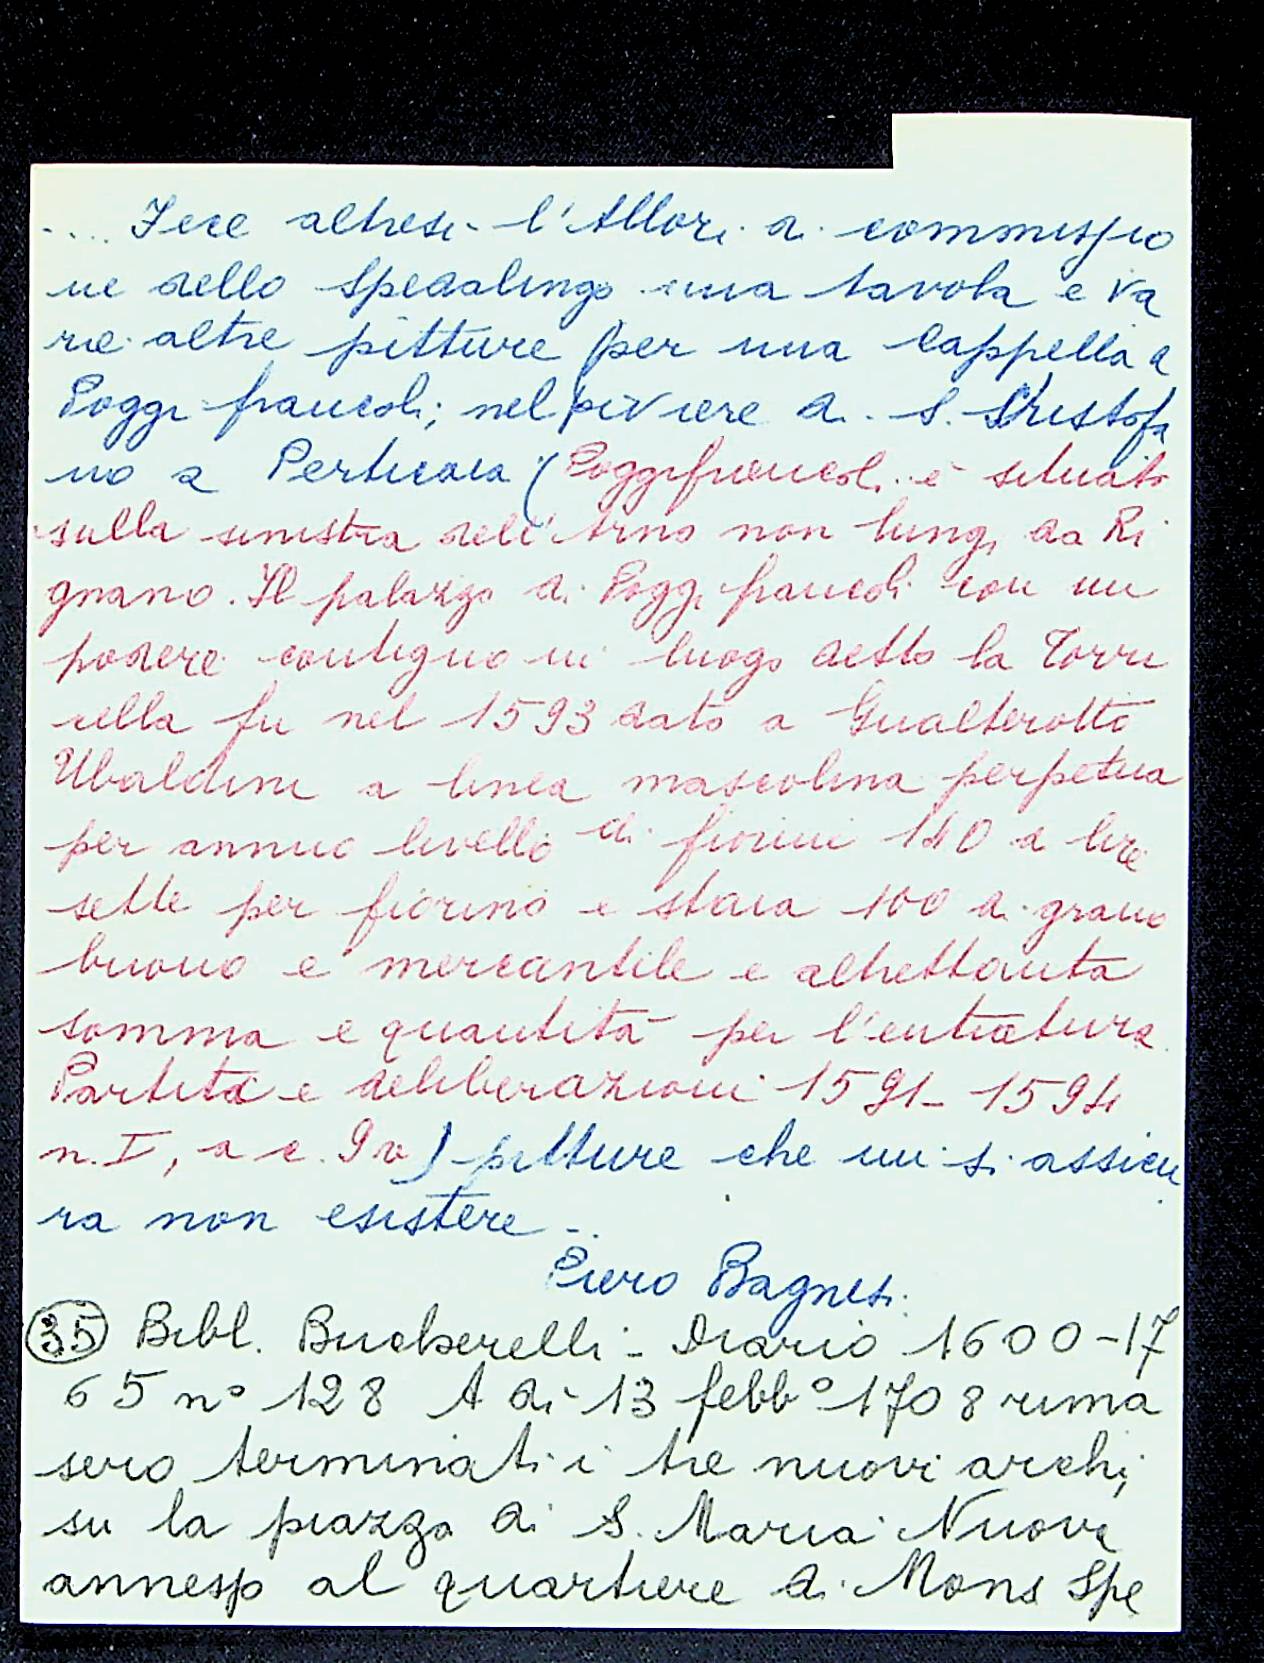 .... Fece altresi l'Allori di commissio
ne dello Spedalingo una tavola e va
rie altre pitture per una Cappella a
Poggi francoli; nel piviere di S. Cristofa
no a Perticaia (Poggifrancoli è situato
sulla sinistra dell'Arno non lungi da Ri
gnano. Il palazzo di Poggi francoli con un
podere contiguo in luogo detto la Torri
cella fu nel 1593 dato a Gualterotto
Ubaldini a linea mascolina perpetua
per annuo livello di fiorini 140 a lire
sette per fiorino e staia 100 di grano
buono e mercantile e altrettanta
somma e quantità per l'entratura
Partiti e deliberazioni 1591-1594
n. I, a c. 9v) pitture che mi si assicu
ra non esistere -.
Piero Bagnesi.
35 Bibl. Bucherelli - Diario 1600-17
65 n° 128 A di 13 febb° 1708 rima
sero terminati i tre nuovi archi,
su la piazza di S. Maria Nuova
annesso al quartiere di Mons Spe